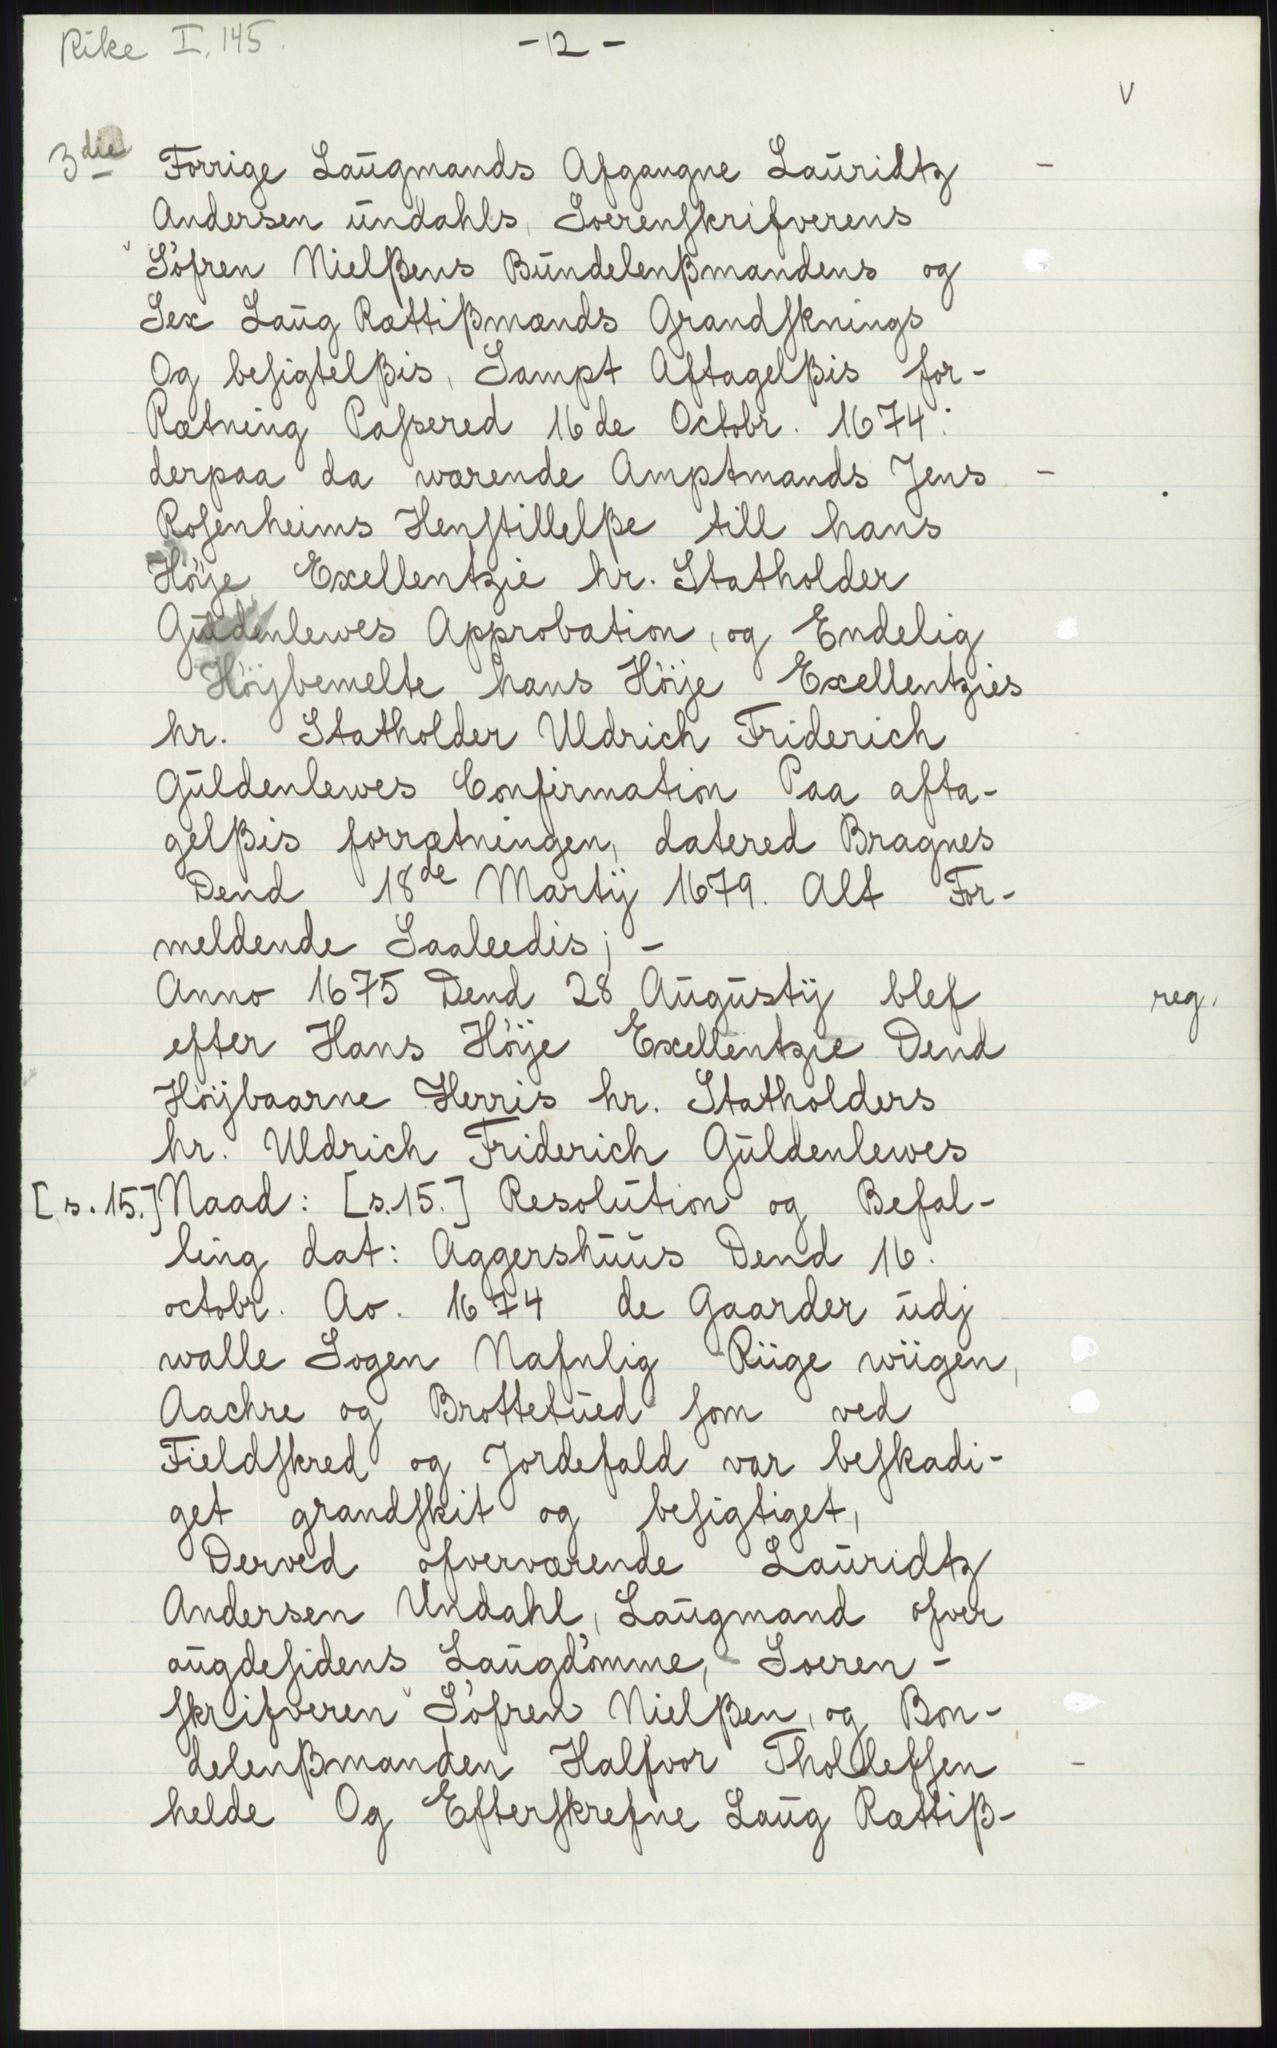 Rike I, 145.
- 12 -
v
3die Forrige Laugmands Afgangne Lauridtz -
Andersen undahls, Soerenskrifverens
Söfren Nielßens Bundelenßmandens og
Sex Laug Rættißmænds Grandsknings
Og besigtelßis, Sampt Aftagelßis for-
Rætning Passered 16 de Octobr. 1674:
derpaa da wærende Amptmands Jens -
Rosenheims Henstillelße till hans
Höje Exellentzie hr. Statholder
Guldenlewes Approbation, og Endelig
Höjbemelte hans Höje Exellentzies
hr. Statholder Uldrich Friderich
Guldenlewes Confirmation Paa afta-
gelßis forrætningen, datered Bragnes
Dend 18de Martij 1679. Alt For-
meldende Saaleedis; -
Anno 1675 Dend 28 Augustij blef reg.
efter Hans Höje Exellentzie Dend
Höjbaarne Herris hr. Statholders
hr. Uldrich Friderich Guldenlewes
[s. 15.] Naad: [s.15.] Resolution og Befal-
ling dat: Aggershuus Dend 16.
octobr. Ao. 1674 de Gaarder udj
walle Sogen Nafnlig Riige wiigen,
Aachre og Brottetued som ved
Fieldskred og Jordefald var beskadi-
get grandskit og besigtiget,
Derved ofverværende Lauridtz
Andersen Undahl, Laugmand ofver
augdesidens Laugdömme, Soeren-
skrifveren Söfren Nielßen, og Bon-
delenßmanden Halfvor Tholleffsen -
helde Og Efterskrefne Laug Rættiß-